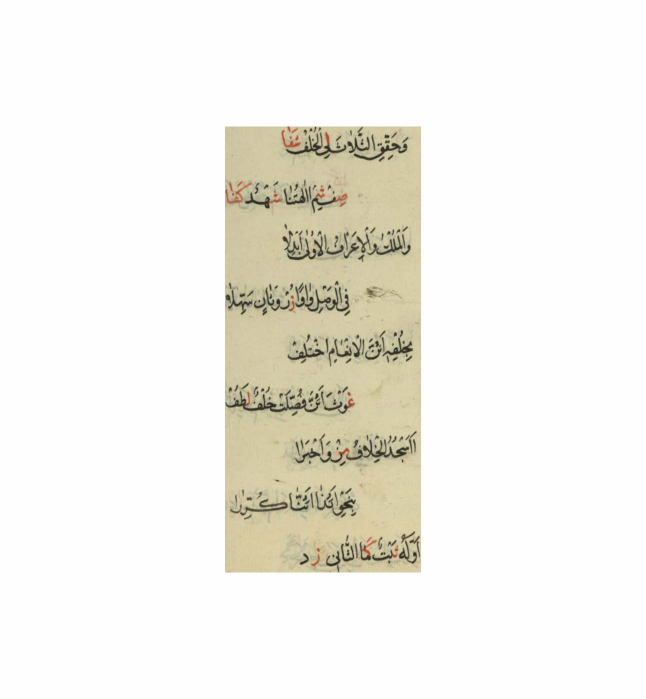 وَحَقِّقِ الثَّلَاثَ لِي الْخُلْفُ شَفَا
صِفْ شِمْ ءَالِهَتُنَا شَهْدٌ كَفَا
وَالْمُلْكُ وَالْاعْرَافُ الْاولَى أَبْدِلَا
فِي الْوَصْلِ وَاوًا زُرْ وَثَانٍ سَهِّلَا
بِخُلْفِهِ أَئِنَّ الْانْعَامِ اخْتُلِفْ
غَوْثٌ أَئِنْ فُصِّلَتْ خُلْفٌ لَطَفْ
أَأَسْجُدُ الْخِلَافُ مِنْ وَأَخْبَرَا
بِنَحْوِ أَئِذَا أَئِنَّا كُرِّرَا
أَوَّلُهُ ثَبْتٌ كَمَا الثَّانِي زِد